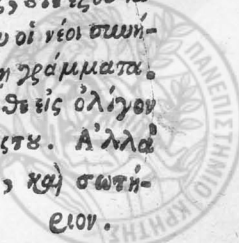 υ οἱ νέοι συνή-
η γράμματα.
θεὶς ὀλίγον
ςτυ. Ἀλλὰ
ς καὶ σωτή-
ριον.
ΠΑΝΕΠΙΣΤΗΜΙΟ
ΚΡΗΤΗΣ